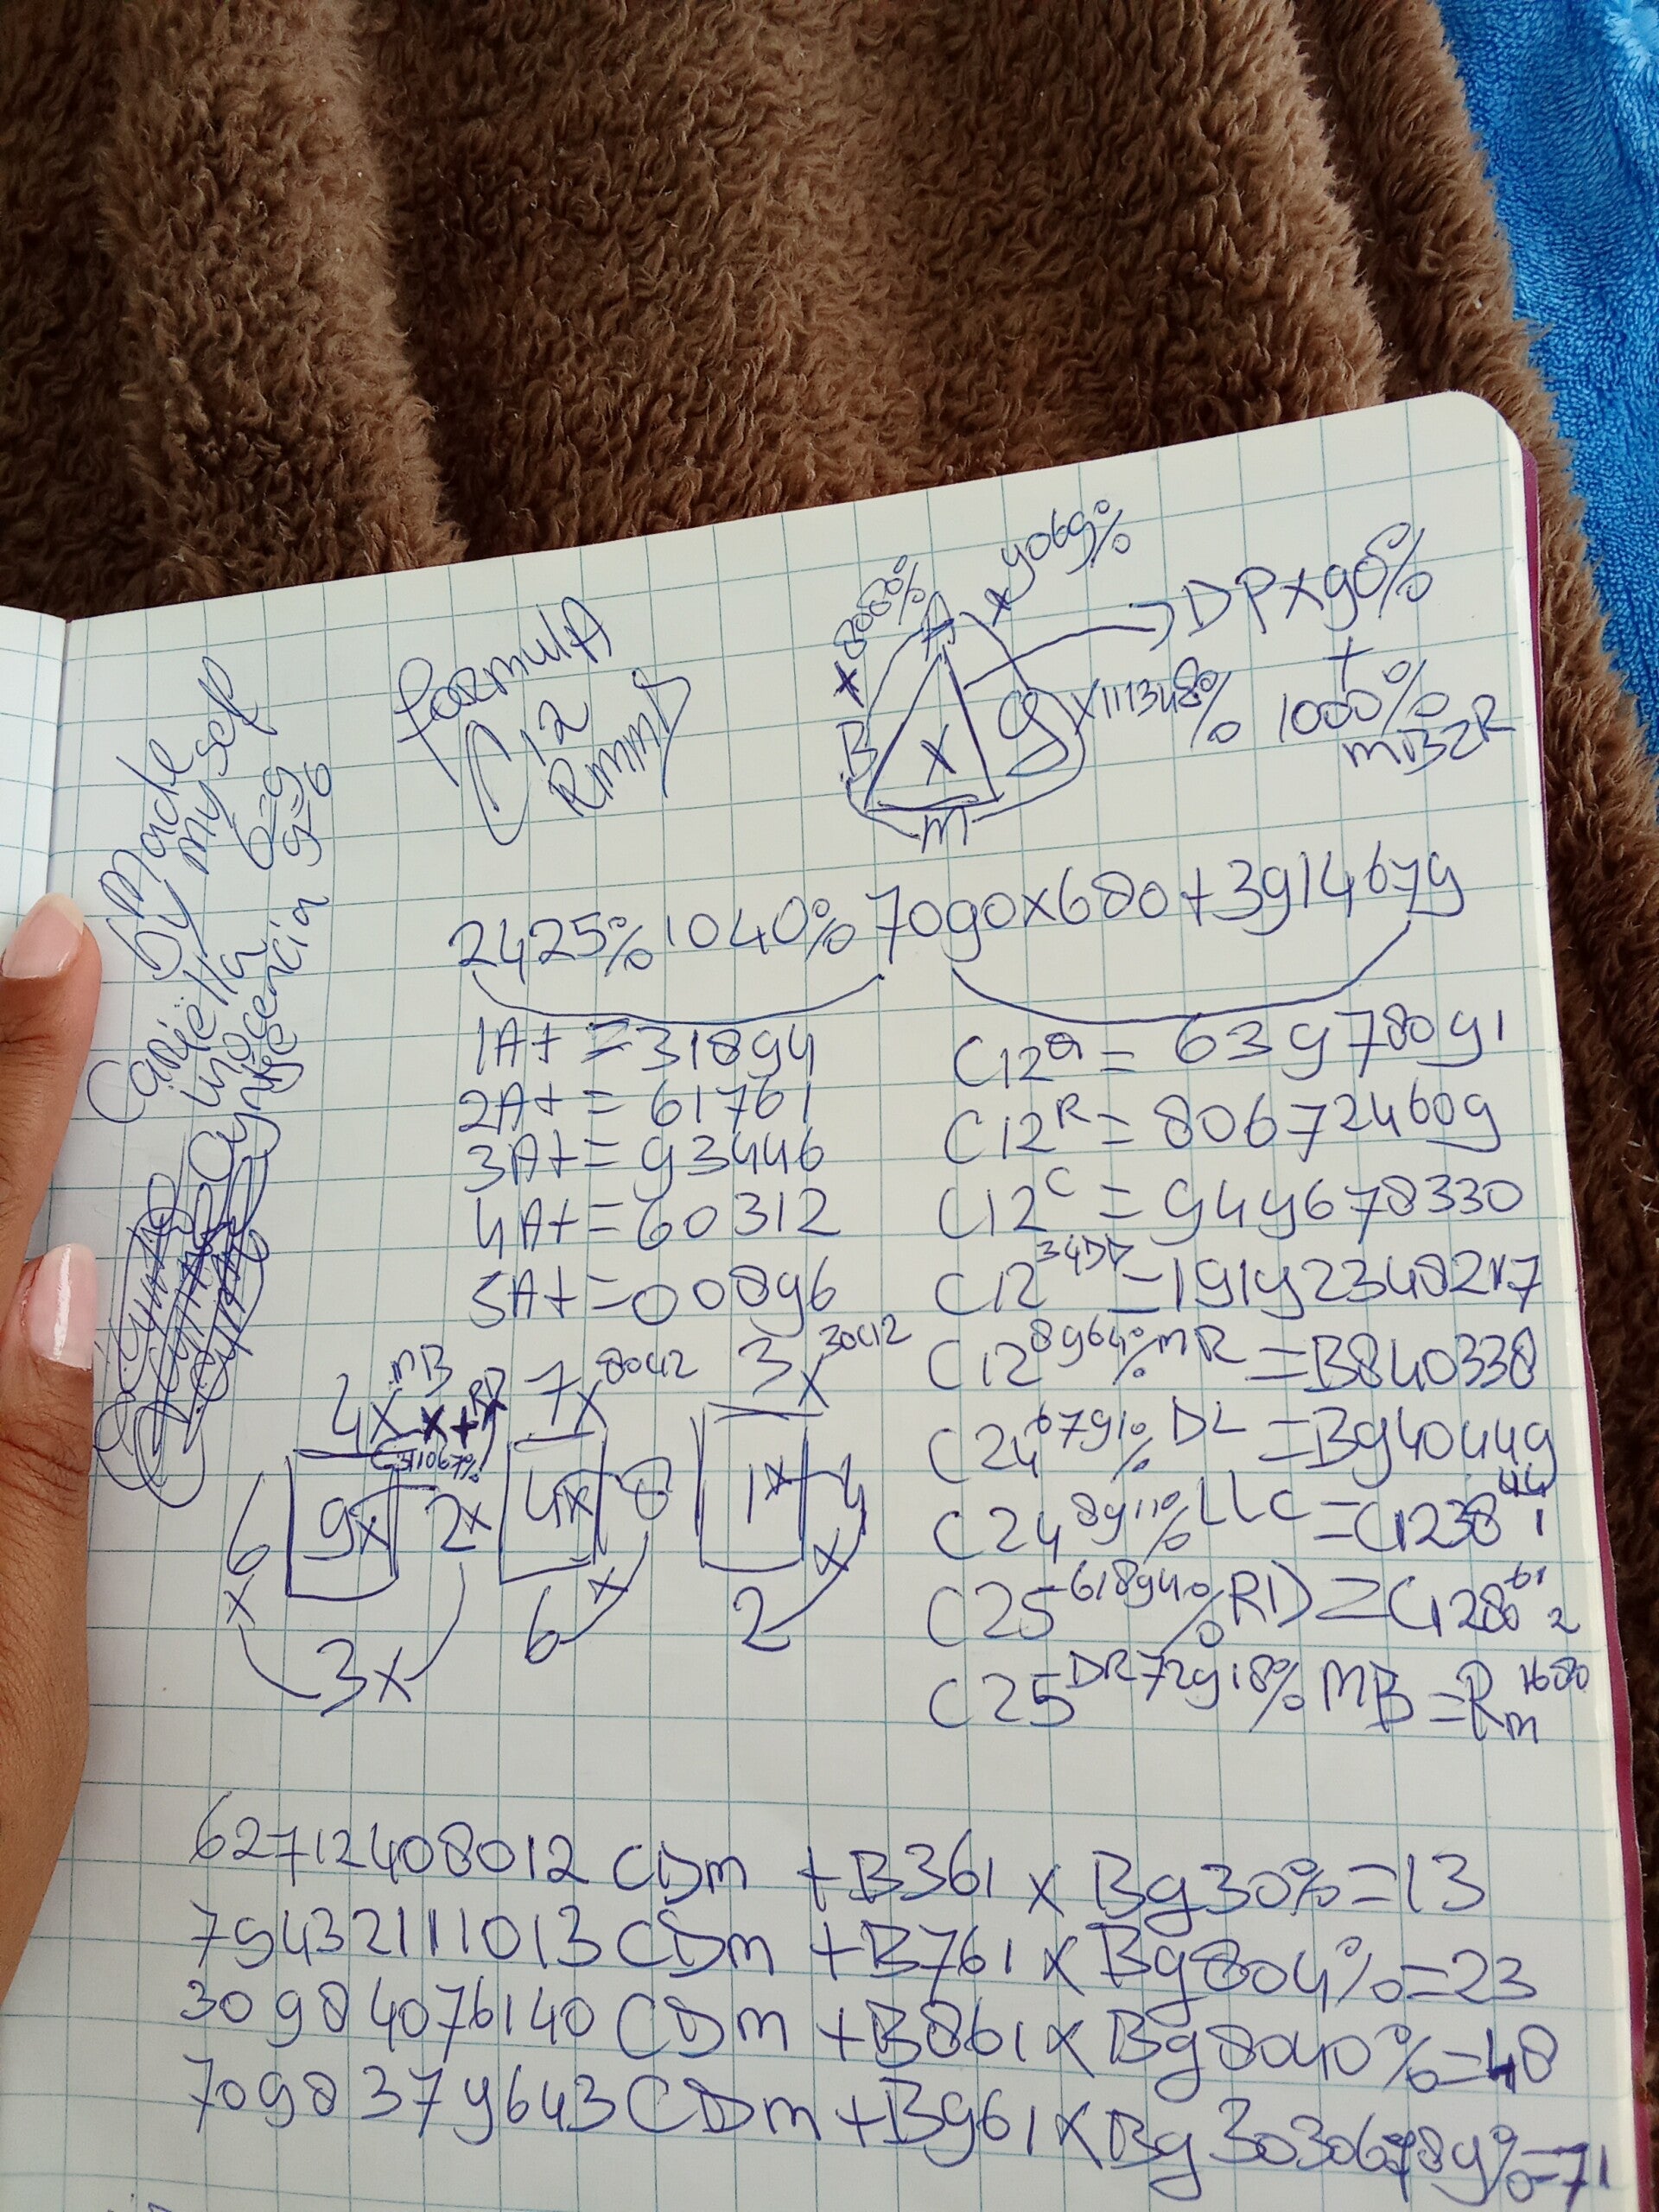 Made
by myself
6=9
9=6
Cariëlla
inocencia
formulA
C12
Rmm
B
A
x
m
9
x8060%
x9069%
x111348%
DPx90%
+
1000%
mB2R
2425%1040%7090x680+3914679
1A+=31894
2A+=61761
3A+=93446
4A+=60312
5A+=00896
C12a=63978091
C12R=806724609
C12C=949678330
C1234DD=19192348217
C128964%mR=B840338
C246791%DL=B940449
C248911%LLC=C123844 1
C2561894%RD=C128061 2
C25DR72918%MB=Rm1680
4xmB
x+RD
7x8042
3x30C12
6
9x
2x
4x
8
1x
4
x
3x
6
x
2
x
62712408012 CDm +B361 x B930%=13
79432111013 CDm +B761 x B9804%=23
30984076140 CDm +B861 x B98040%=48
70983799643 CDm +B961 x B930306789%=71